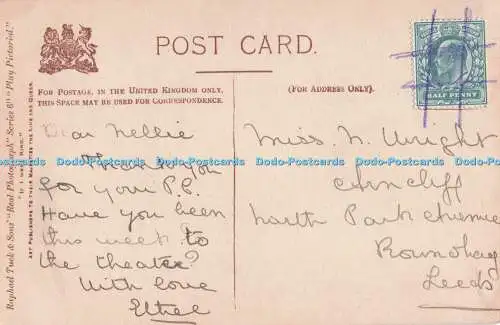 POST CARD.
FOR POSTAGE, IN THE UNITED KINGDOM ONLY,
THIS SPACE MAY BE USED FOR CORRESPONDENCE.
(FOR ADDRESS ONLY.)
HALF PENNY
Raphael Tuck & Sons' "Real Photograph" Series 611 "Play Pictorial."
"IF I WERE KING."
ART PUBLISHERS TO THEIR MAJESTIES THE KING AND QUEEN.
Dear Nellie
Thank you
for your P.C.
Have you been
this week to
the theatre?
With love
Ethel
Miss N. Wright
Arncliff
North Park Avenue
Roundhay
Leeds
Dodo-Postcards Dodo-Postcards Dodo-Postcards Dodo-Postcards Dodo-Postcards Dodo-Postcards